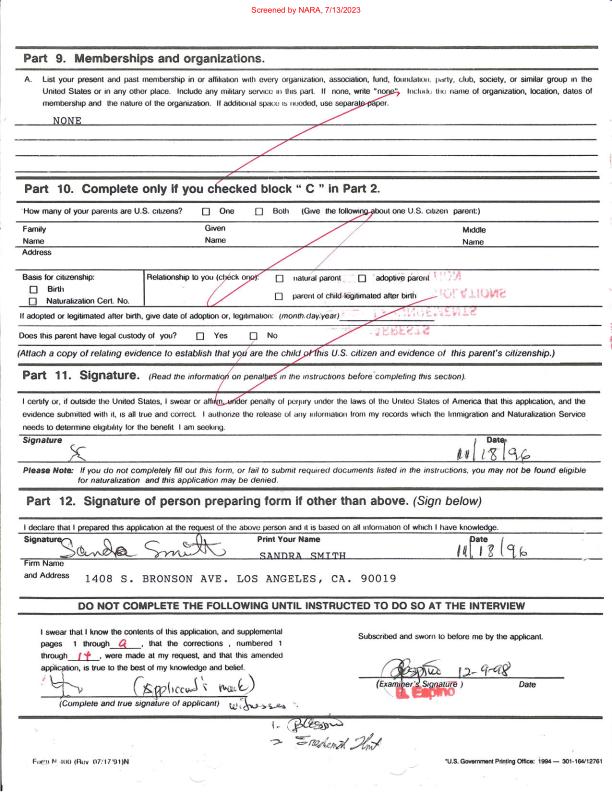 Screened by NARA, 7/13/2023
Part 9. Memberships and organizations.
A. List your present and past membership in or affiliation with every organization, association, fund, foundation, party, club, society, or similar group in the
United States or in any other place. Include any military service in this part. If none, write "none". Include the name of organization, location, dates of
membership and the nature of the organization. If additional space is needed, use separate paper.
NONE
Part 10. Complete only if you checked block " C " in Part 2.
How many of your parents are U.S. citizens? One Both (Give the following about one U.S. citizen parent:)
Family Given Middle
Name Name Name
Address
Basis for citizenship: Relationship to you (check one): natural parent adoptive parent
Birth
Naturalization Cert. No. parent of child legitimated after birth
If adopted or legitimated after birth, give date of adoption or, legitimation: (month.day.year)
Does this parent have legal custody of you? Yes No
(Attach a copy of relating evidence to establish that you are the child of this U.S. citizen and evidence of this parent's citizenship.)
Part 11. Signature. (Read the information on penalties in the instructions before completing this section).
I certify or, if outside the United States, I swear or affirm, under penalty of perjury under the laws of the United States of America that this application, and the
evidence submitted with it, is all true and correct. I authorize the release of any information from my records which the Immigration and Naturalization Service
needs to determine eligibility for the benefit I am seeking.
Signature Date
11/18/96
Please Note: If you do not completely fill out this form, or fail to submit required documents listed in the instructions, you may not be found eligible
for naturalization and this application may be denied.
Part 12. Signature of person preparing form if other than above. (Sign below)
I declare that I prepared this application at the request of the above person and it is based on all information of which I have knowledge.
Signature Print Your Name Date
Sandra Smith SANDRA SMITH 11/18/96
Firm Name
and Address 1408 S. BRONSON AVE. LOS ANGELES, CA. 90019
DO NOT COMPLETE THE FOLLOWING UNTIL INSTRUCTED TO DO SO AT THE INTERVIEW
I swear that I know the contents of this application, and supplemental
pages 1 through , that the corrections , numbered 1
through 14 , were made at my request, and that this amended
application, is true to the best of my knowledge and belief.
(Applicant's mark)
(Complete and true signature of applicant) witnesses:
Subscribed and sworn to before me by the applicant.
Espino 12-9-98
(Examiner's Signature ) Date
Espino
1.
2
Form N-400 (Rev 07/17/91)N *U.S. Government Printing Office: 1994 — 301-164/12761